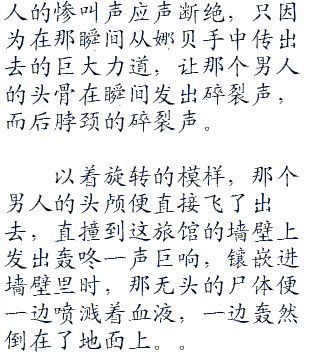 人的惨叫声应声断绝，只因
为在那瞬间从娜贝手中传出
去的巨大力道，让那个男人
的头骨在瞬间发出碎裂声，
而后脖颈的碎裂声。
以着旋转的模样，那个
男人的头颅便直接飞了出
去，直撞到这旅馆的墙壁上
发出轰咚一声巨响，镶嵌进
墙壁里时，那无头的尸体便
一边喷溅着血液，一边轰然
倒在了地面上。。